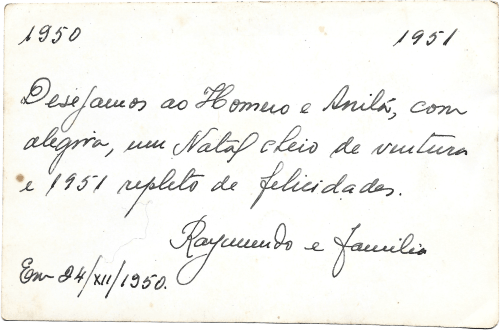 1950 1951
Desejamos ao Homero e Anita, com
alegria, um Natal cheio de ventura
e 1951 repleto de felicidades.
Raymundo e familia
Em 24/XII/1950.